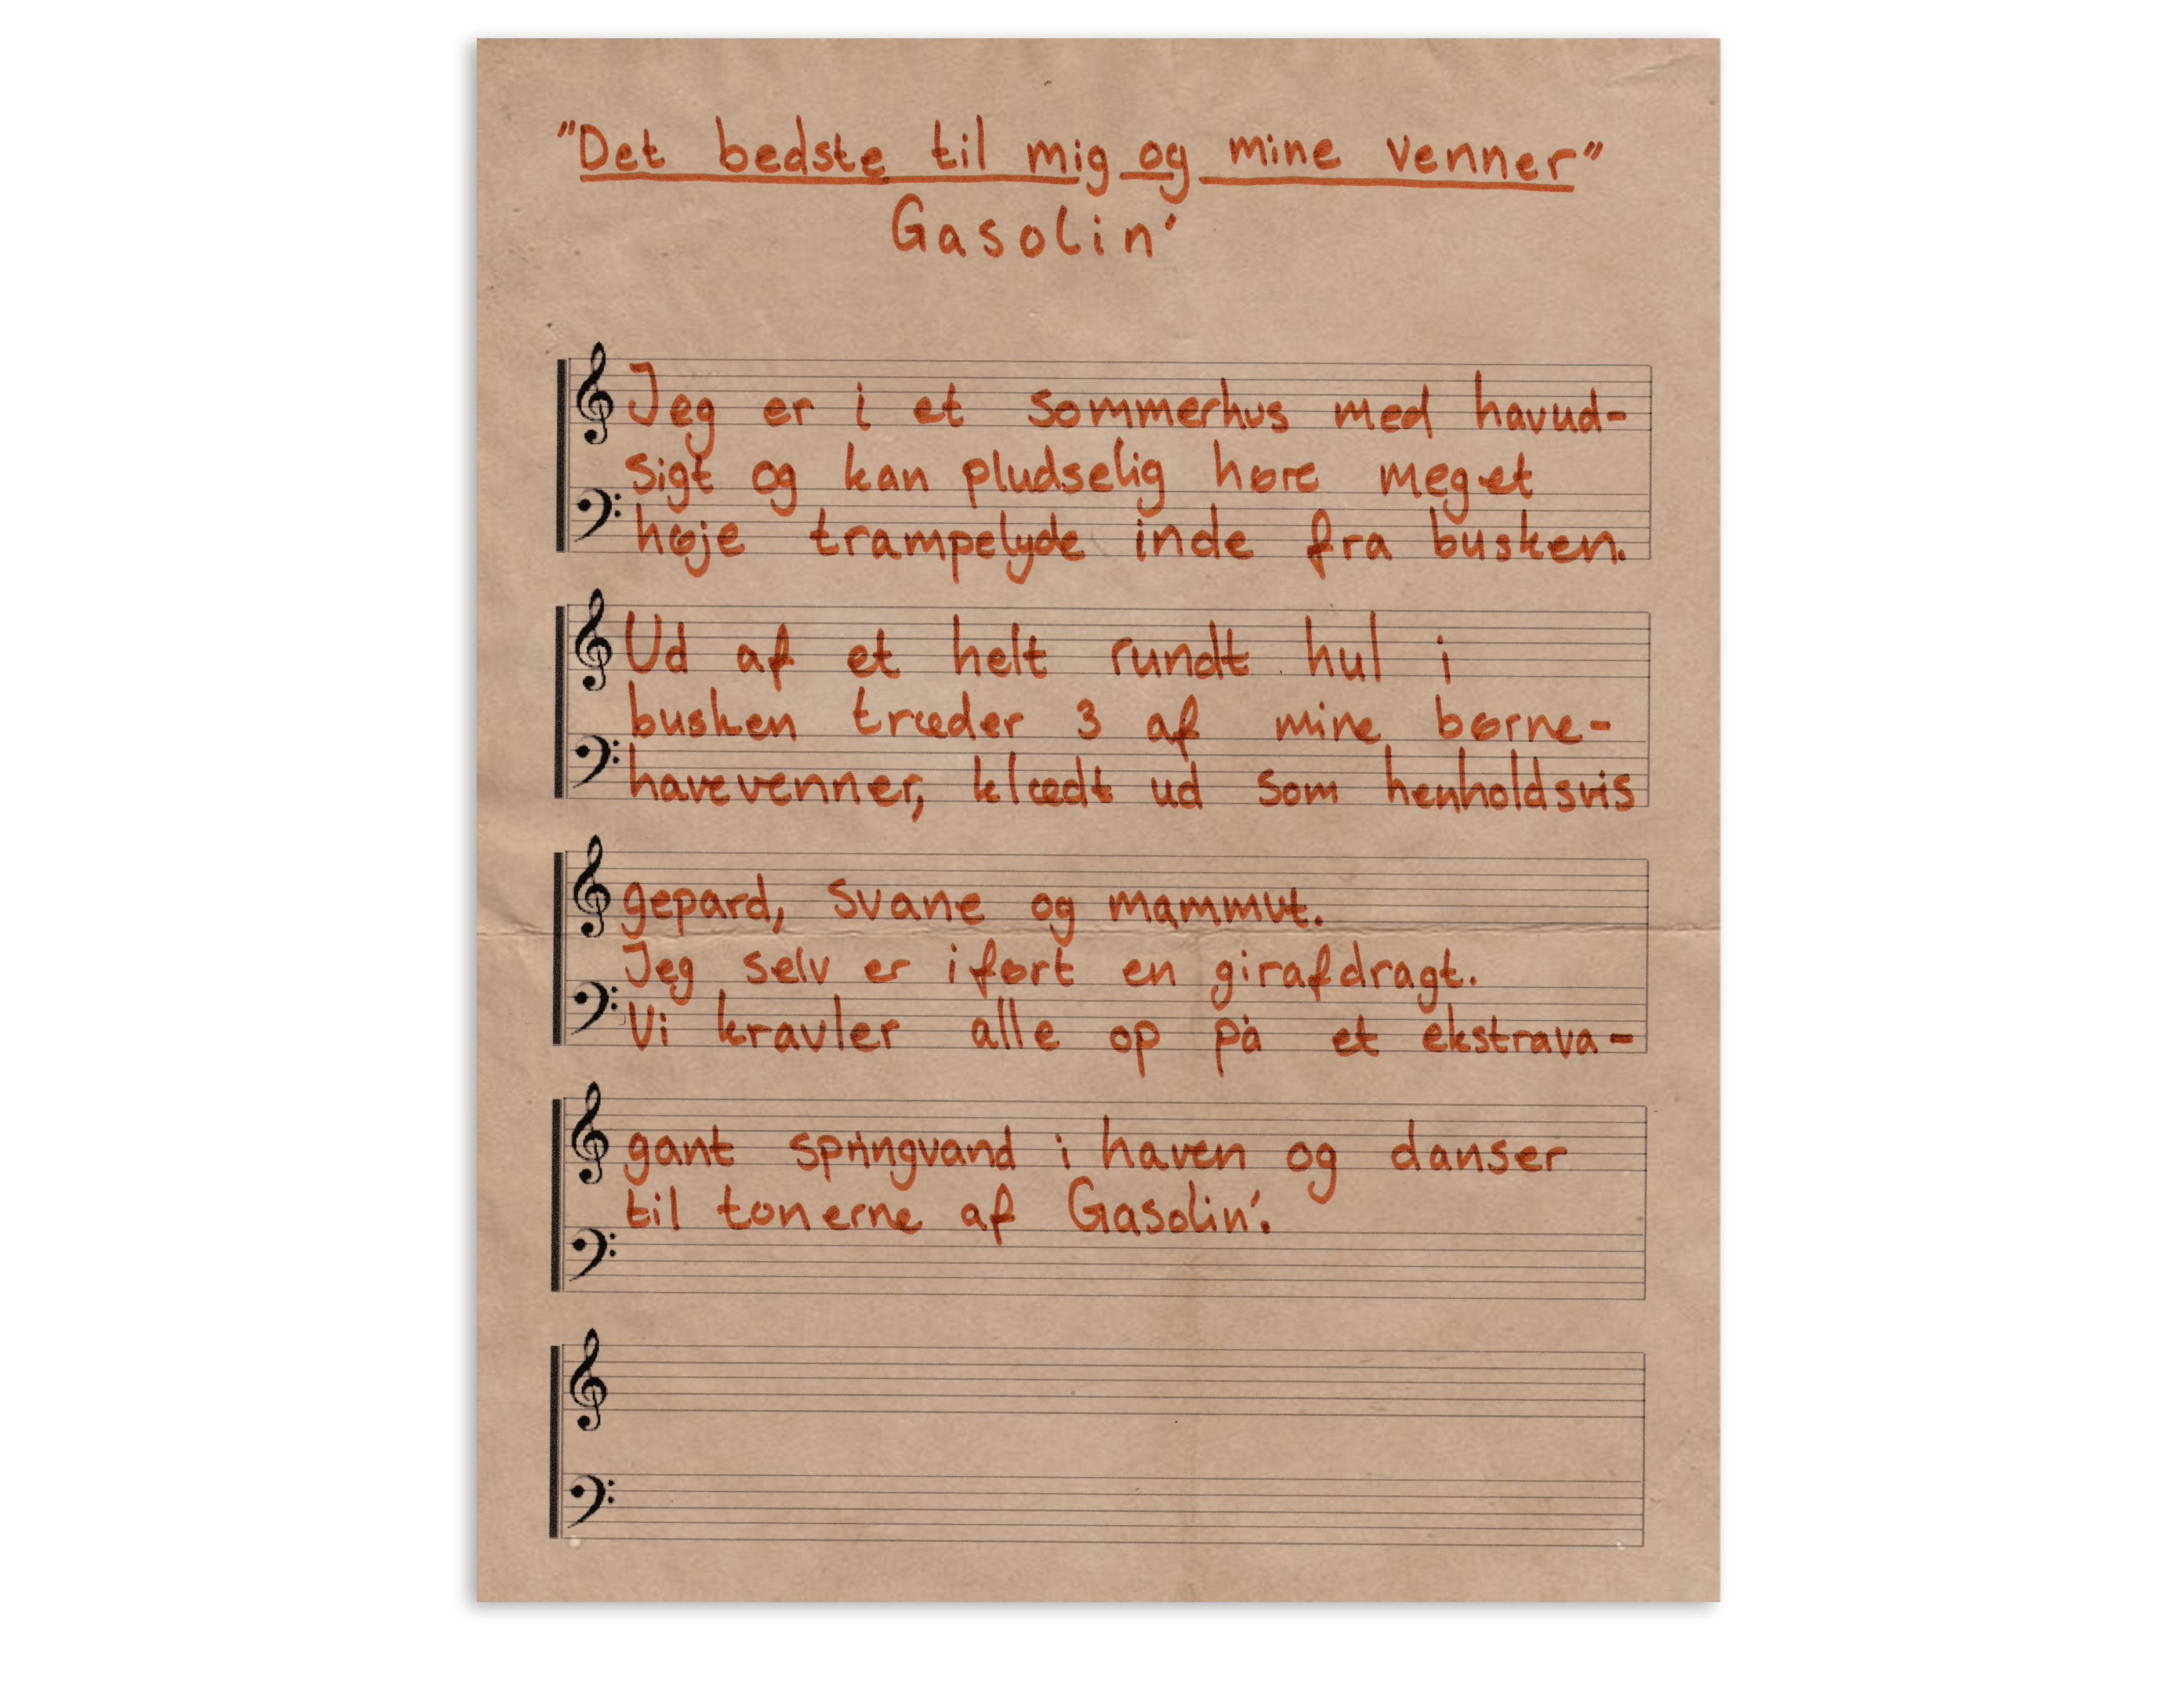 "Det bedste til mig og mine venner"
Gasolin'
Jeg er i et sommerhus med havud-
sigt og kan pludselig høre meget
høje trampelyde inde fra busken.
Ud af et helt rundt hul i
busken træder 3 af mine børne-
havevenner, klædt ud som henholdsvis
gepard, svane og mammut.
Jeg selv er iført en girafdragt.
Vi kravler alle op på et ekstrava-
gant springvand i haven og danser
til tonerne af Gasolin'.